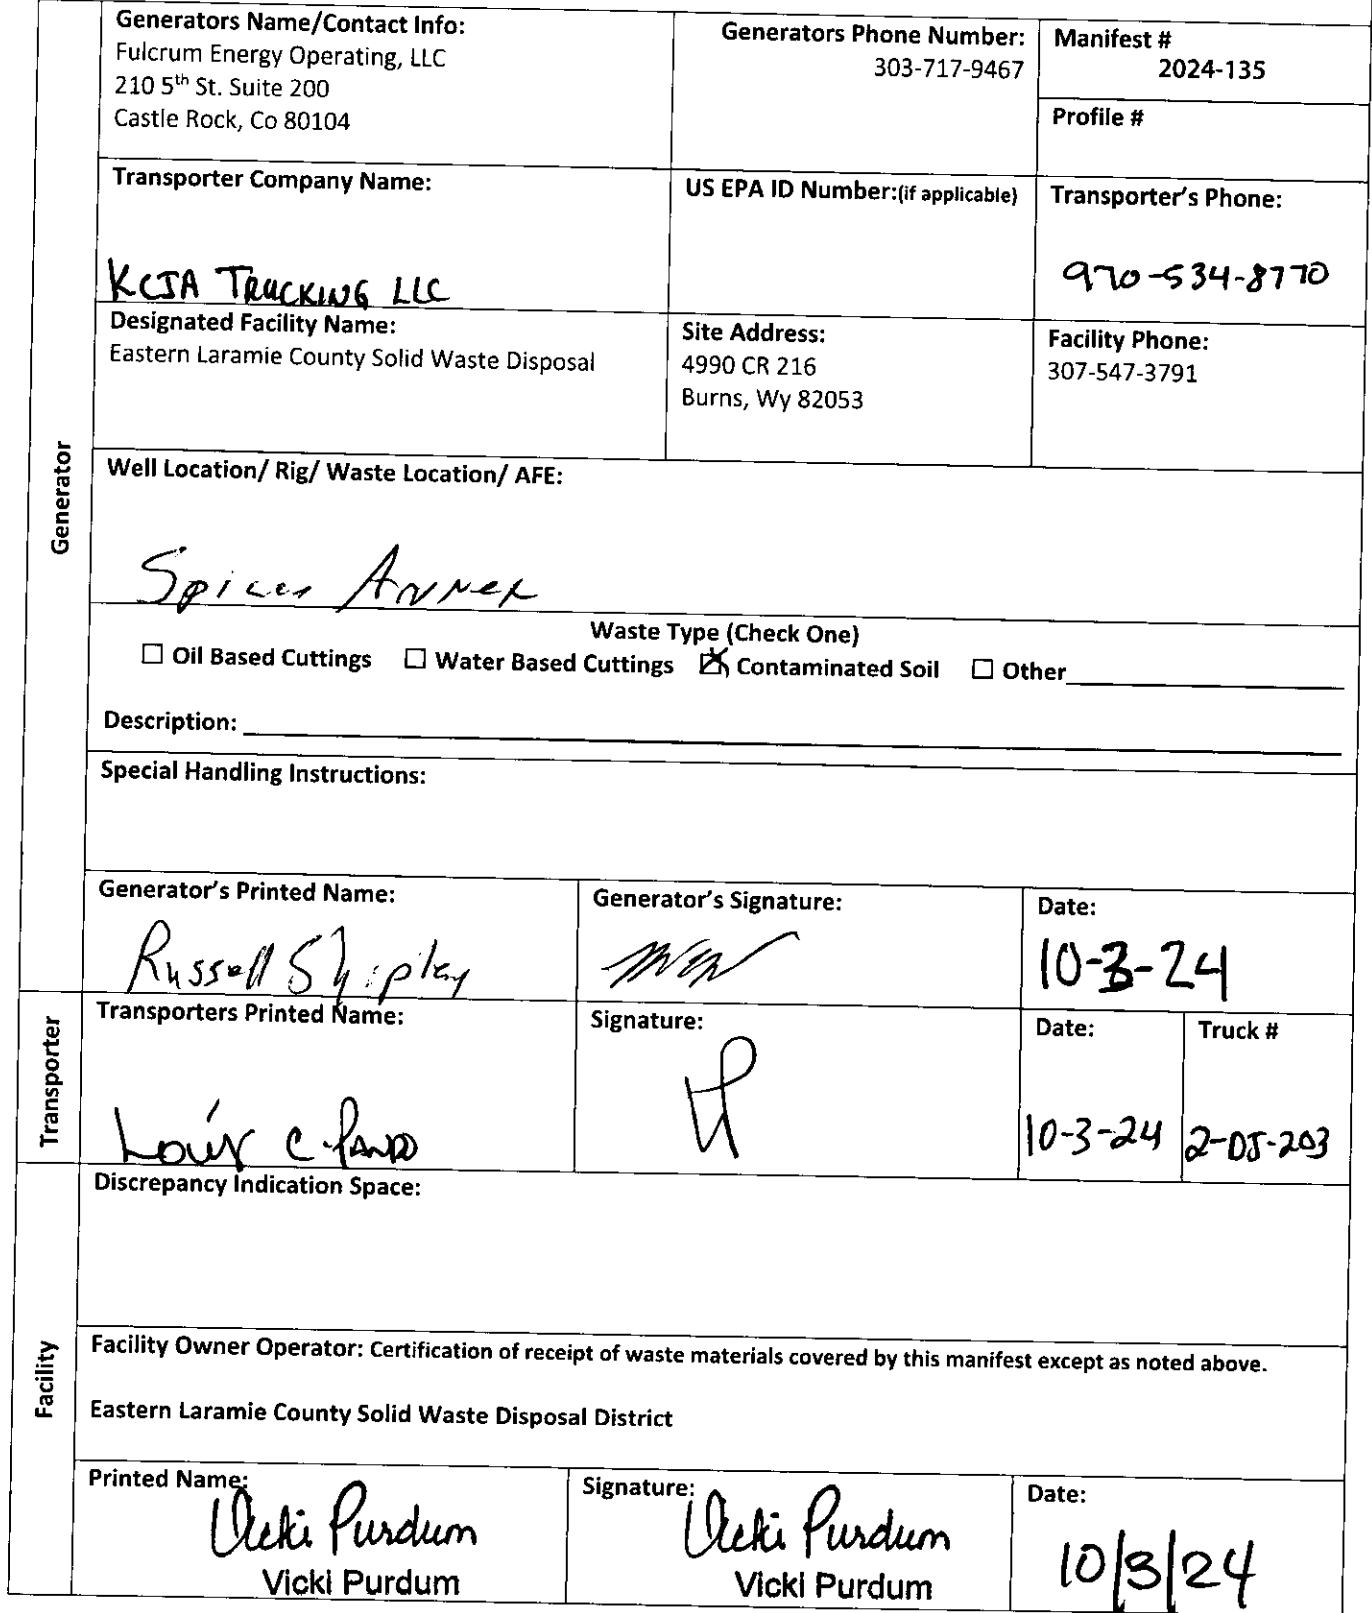 Generators Name/Contact Info:
Fulcrum Energy Operating, LLC
210 5th St. Suite 200
Castle Rock, Co 80104
Generators Phone Number:
303-717-9467
Manifest #
2024-135
Profile #
Transporter Company Name:
KCJA TRUCKING LLC
US EPA ID Number:(if applicable)
Transporter's Phone:
970-534-8770
Designated Facility Name:
Eastern Laramie County Solid Waste Disposal
Site Address:
4990 CR 216
Burns, Wy 82053
Facility Phone:
307-547-3791
Generator
Well Location/ Rig/ Waste Location/ AFE:
Spicer Annex
Waste Type (Check One)
☐ Oil Based Cuttings ☐ Water Based Cuttings ☒ Contaminated Soil ☐ Other
Description:
Special Handling Instructions:
Generator's Printed Name:
Russell Shipley
Generator's Signature:
Date:
10-3-24
Transporter
Transporters Printed Name:
Louis C. Pando
Signature:
Date:
10-3-24
Truck #
2-DJ-203
Facility
Discrepancy Indication Space:
Facility Owner Operator: Certification of receipt of waste materials covered by this manifest except as noted above.
Eastern Laramie County Solid Waste Disposal District
Printed Name:
Vicki Purdum
Vicki Purdum
Signature:
Vicki Purdum
Vicki Purdum
Date:
10/3/24